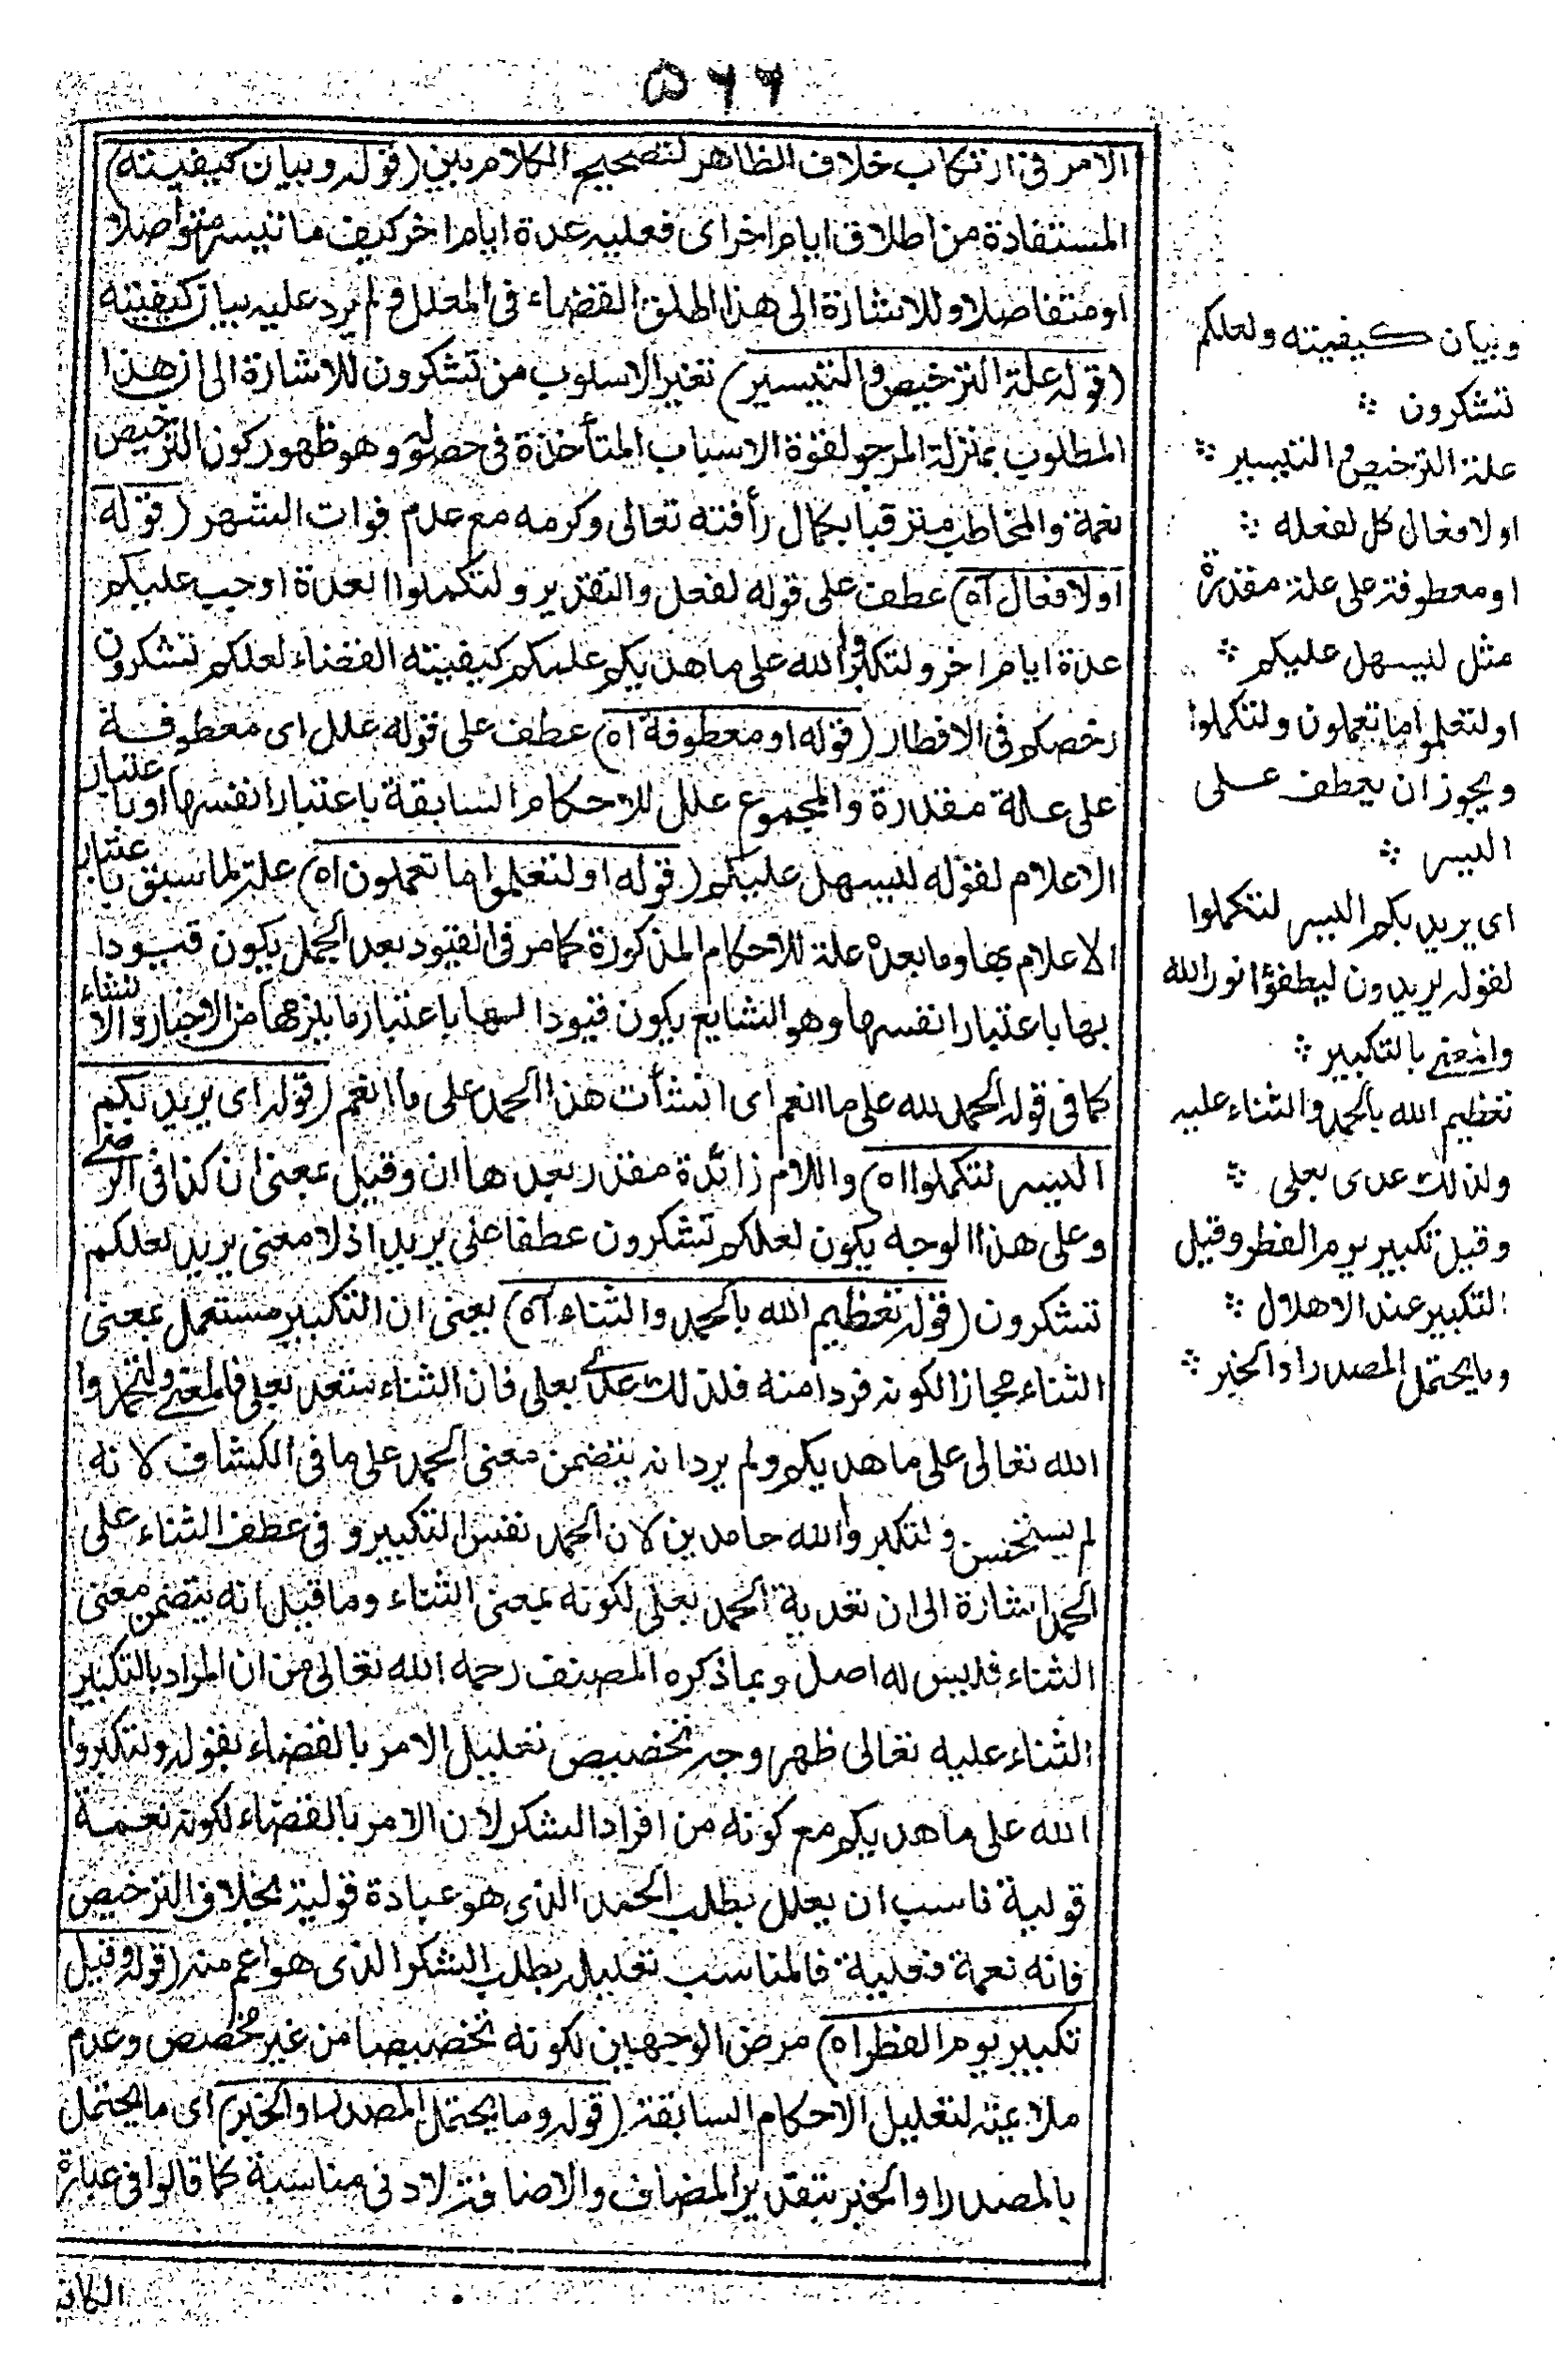 ۵۶۶
الامر فى ارتكاب خلاف الظاهر لتصحيح الكلام بين (قوله وبيان كيفيته)
المستفادة من اطلاق ايام اخر اى فعليه عدة ايام اخر كيف ما تيسر متواصلا
او متفاصلا وللاشارة الى هذا اطلق القضاء فى المعلل ولم يرد عليه بيان كيفيته
(قوله علة الترخيص والتيسير) تغير الاسلوب من تشكرون للاشارة الى ان هذا
المطلوب بمنزلة المرجو لقوة الاسباب المتأخذة فى حصوله وهو ظهور كون الترخيص
نعمة والمخاطب مترقبا بكمال رأفته تعالى وكرمه مع عدم فوات الشهر (قوله
او لافعال آه) عطف على قوله لفعل والتقدير ولتكملوا العدة اوجب عليكم
عدة ايام اخر ولتكبروا الله على ما هديكم علمكم كيفيته القضاء لعلكم تشكرون
رخصكم فى الافطار (قوله او معطوفة اه) عطف على قوله علل اى معطوفة
على علة مقدرة والمجموع علل للاحكام السابقة باعتبار انفسها او باعتبار
الاعلام لقوله ليسهل عليكم (قوله او لتعلموا ما تعملون اه) علة لما سبق باعتبار
الاعلام بها وما بعده علة للاحكام المذكورة كما مر فى القيود بعد الجمل يكون قيودا
بها باعتبار انفسها وهو الشايع يكون قيودا لها باعتبار ما يلزمها من الاخبار والانشاء
كما فى قوله الحمد لله على ما انعم اى انشأت هذا الحمد على ما انعم (قوله اى يريد بكم
اليسر لتكملوا اه) واللام زائدة مقدر بعدها ان وقيل بمعنى ان كذا فى الرضى
وعلى هذا الوجه يكون لعلكم تشكرون عطفا على يريد اذ لا معنى يريد لعلكم
تشكرون (قوله تعظيم الله بالحمد والثناء آه) يعنى ان التكبير مستعمل بمعنى
الثناء مجازا لكونه فردا منه فلذلك عدى بعلى فان الثناء يتعدى بعلى فالمعنى ولتحمدوا
الله تعالى على ما هديكم ولم يرد انه يتضمن معنى الحمد على ما فى الكشاف لانه
لم يستحسن ولتكبروا الله حامدين لان الحمد نفس التكبير وفى عطف الثناء على
الحمد اشارة الى ان تعدية الحمد بعلى لكونه بمعنى الثناء وما قيل انه يتضمن معنى
الثناء فليس له اصل وبما ذكره المصنف رحمه الله تعالى من ان المراد بالتكبير
الثناء عليه تعالى ظهر وجه تخصيص تعليل الامر بالقضاء بقوله ولتكبروا
الله على ما هديكم مع كونه من افراد الشكر لان الامر بالقضاء لكونه نعمة
قولية ناسب ان يعلل بطلب الحمد الذى هو عبادة قولية بخلاف الترخيص
فانه نعمة فعلية فالمناسب تعليله بطلب الشكر الذى هو اعم منه (قوله وقيل
تكبير يوم الفطر اه) مرض الوجهين لكونه تخصيصا من غير مخصص وعدم
ملايمته لتعليل الاحكام السابقة (قوله وما يحتمل المصدر او الخبر) اى ما يحتمل
بالمصدر او الخبر بتقدير المضاف والاضافة لادنى مناسبة كما قالوا فى عبارة
وبيان كيفيته ولعلكم
تشكرون ❖
علة الترخيص والتيسير ❖
او لافعال كل لفعله ❖
او معطوفة على علة مقدرة
مثل ليسهل عليكم ❖
او لتعلموا ما تعملون ولتكملوا
ويجوز ان يعطف على
اليسر ❖
اى يريد بكم اليسر لتكملوا
لقوله يريدون ليطفؤا نور الله
والمعنى بالتكبير ❖
تعظيم الله بالحمد والثناء عليه
ولذلك عدى بعلى ❖
وقيل تكبير يوم الفطر وقيل
التكبير عند الاهلال ❖
وما يحتمل المصدر او الخبر ❖